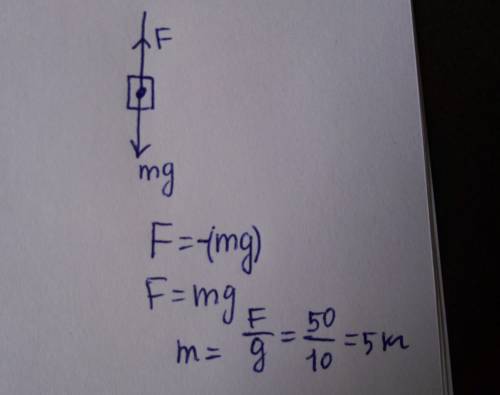 F
mg
F = -(mg)
F = mg
m = F/g = 50/10 = 5 кг